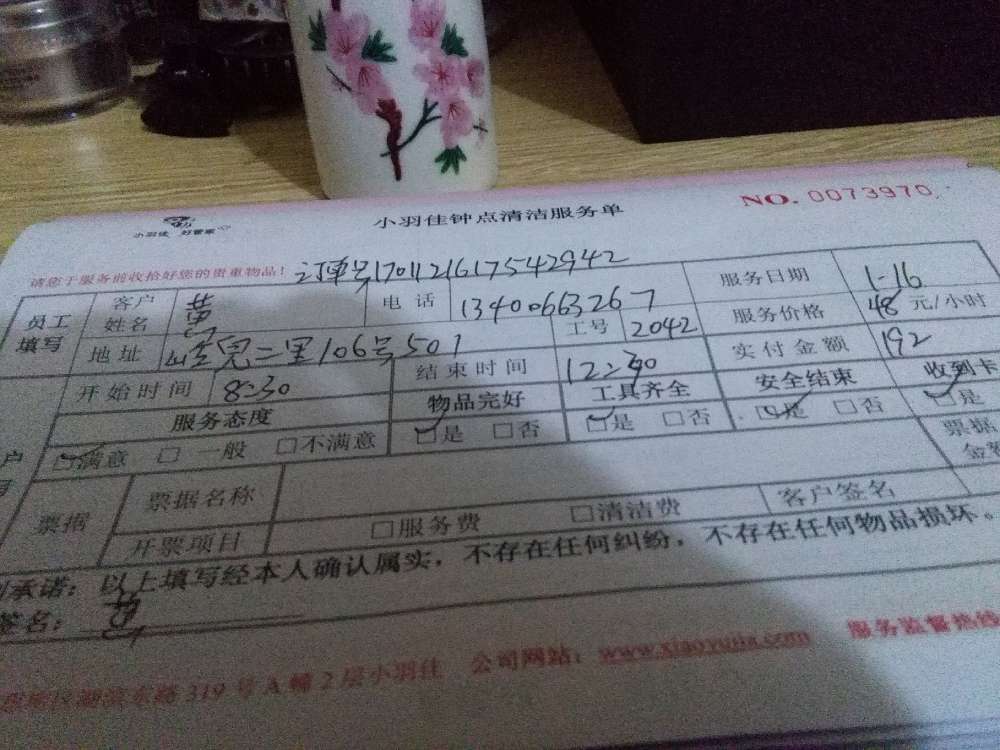 小羽佳 好管家
小羽佳钟点清洁服务单
NO. 0073970
请您于服务前收拾好您的贵重物品! 订单号1701121617542942
员工填写 客户姓名 黄 电话 13400663267 服务日期 1-16
地址 二里106号501 工号 2042 服务价格 48 元/小时
开始时间 8:30 结束时间 12:30 实付金额 192
服务态度 物品完好 工具齐全 安全结束 收到卡
□满意 □一般 □不满意 □是 □否 □是 □否 □是 □否 □是
票据 票据名称 票据
开票项目 □服务费 □清洁费 客户签名
承诺:以上填写经本人确认属实,不存在任何纠纷,不存在任何物品损坏。
签名: 黄
湖滨东路319号A幢2层小羽佳 公司网站:www.xiaoyujia.com 服务监督热线